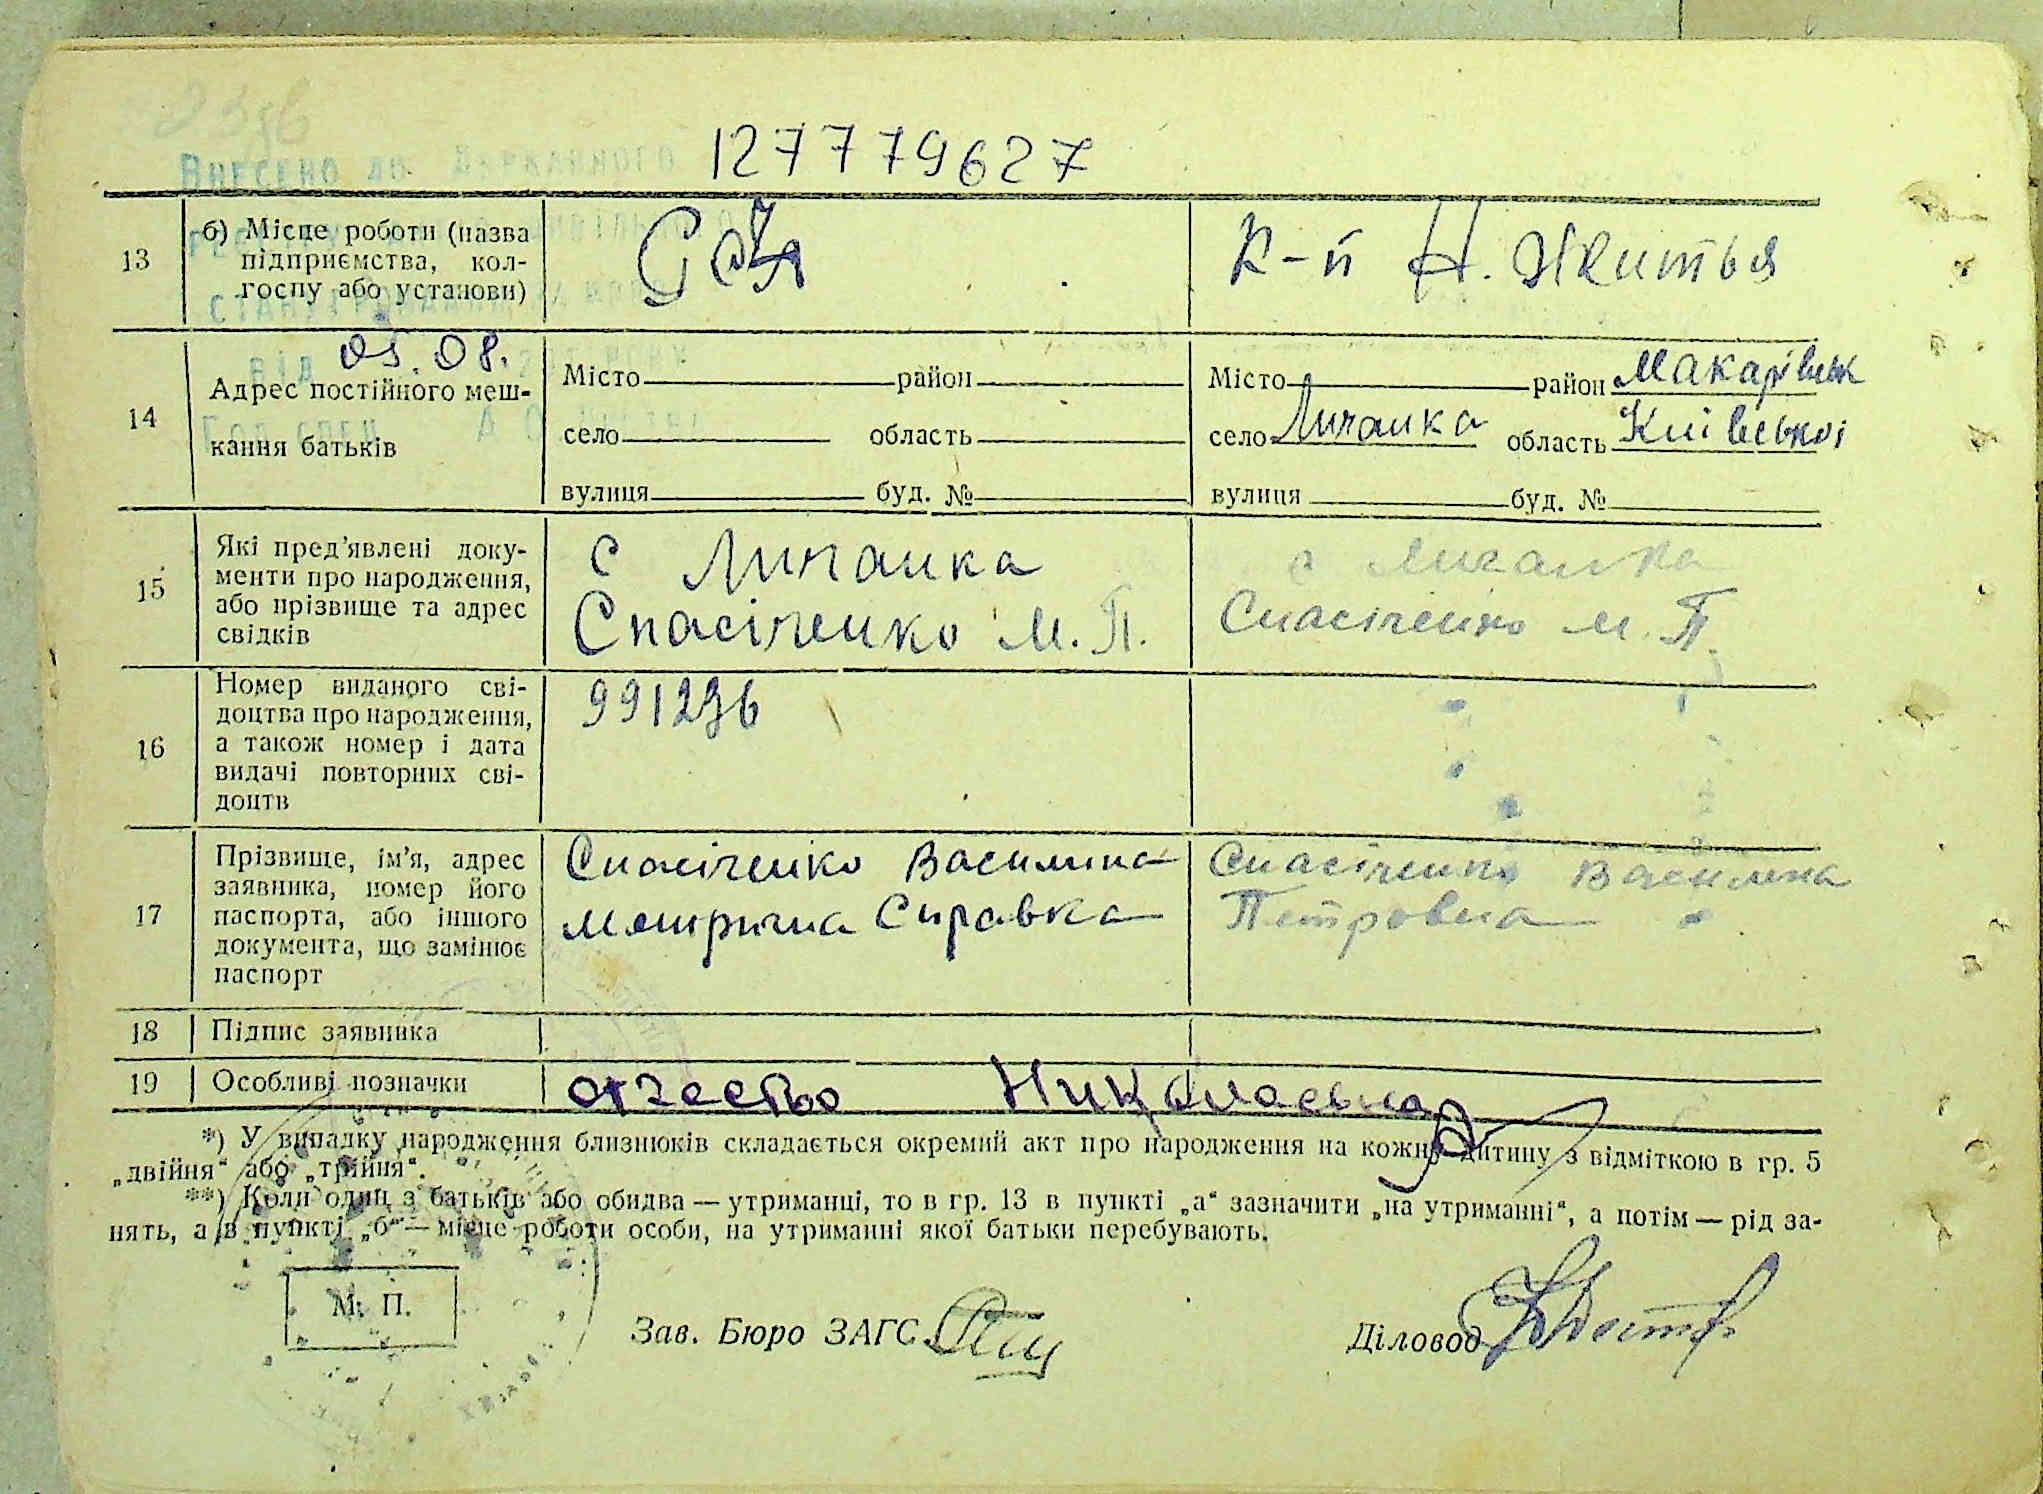 127779627
Внесено до Державного
13
б) Місце роботи (назва
підприємства, кол-
госпу або установи)
К-п Н. Життья
05.08.
14
Адрес постійного меш-
кання батьків
Місто район
село область
вулиця буд. №
Місто район Макарівськ
село Личанка область Київської
вулиця буд. №
15
Які пред'явлені доку-
менти про народження,
або прізвище та адрес
свідків
с Личанка
Спасіченко М. П.
с Личанка
Спасіченко М. П.
16
Номер виданого сві-
доцтва про народження,
а також номер і дата
видачі повторних сві-
доцтв
991236
17
Прізвище, ім'я, адрес
заявника, номер його
паспорта, або іншого
документа, що замінює
паспорт
Спасіченко Василина
Метрична Справка
Спасіченко Василина
Петровна
18
Підпис заявника
19
Особливі позначки
отчество Николаевна
*) У випадку народження близнюків складається окремий акт про народження на кожну дитину з відміткою в гр. 5
„двійня“ або „трійня“.
**) Коли один з батьків або обидва — утриманці, то в гр. 13 в пункті „а“ зазначити „на утриманні“, а потім — рід за-
нять, а в пункті „б“ — місце роботи особи, на утриманні якої батьки перебувають.
М. П.
Зав. Бюро ЗАГС
Діловод